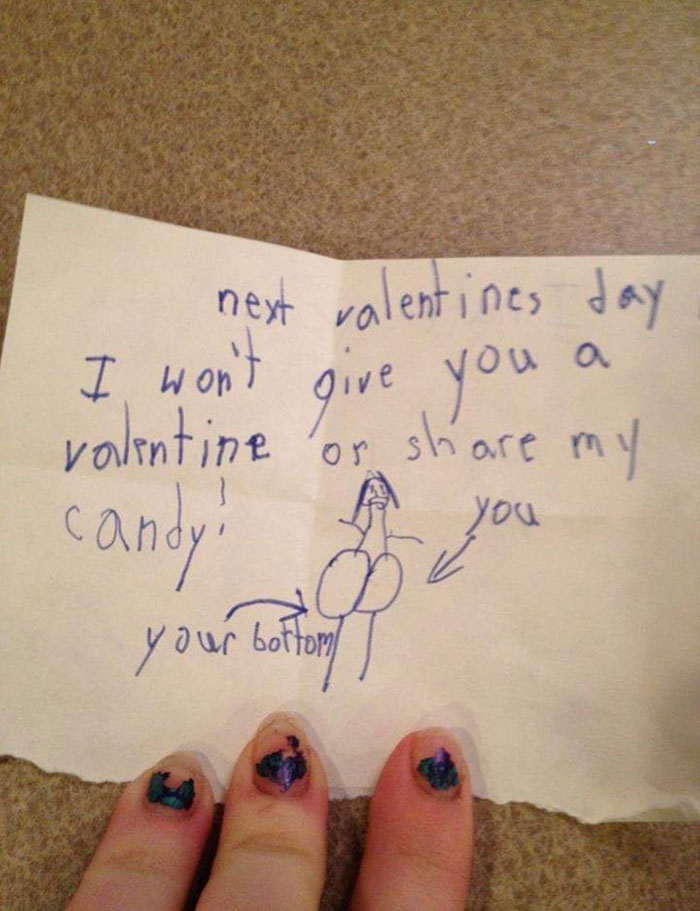 next valentines day
I won't give you a
valentine or share my
candy!
you
your bottom